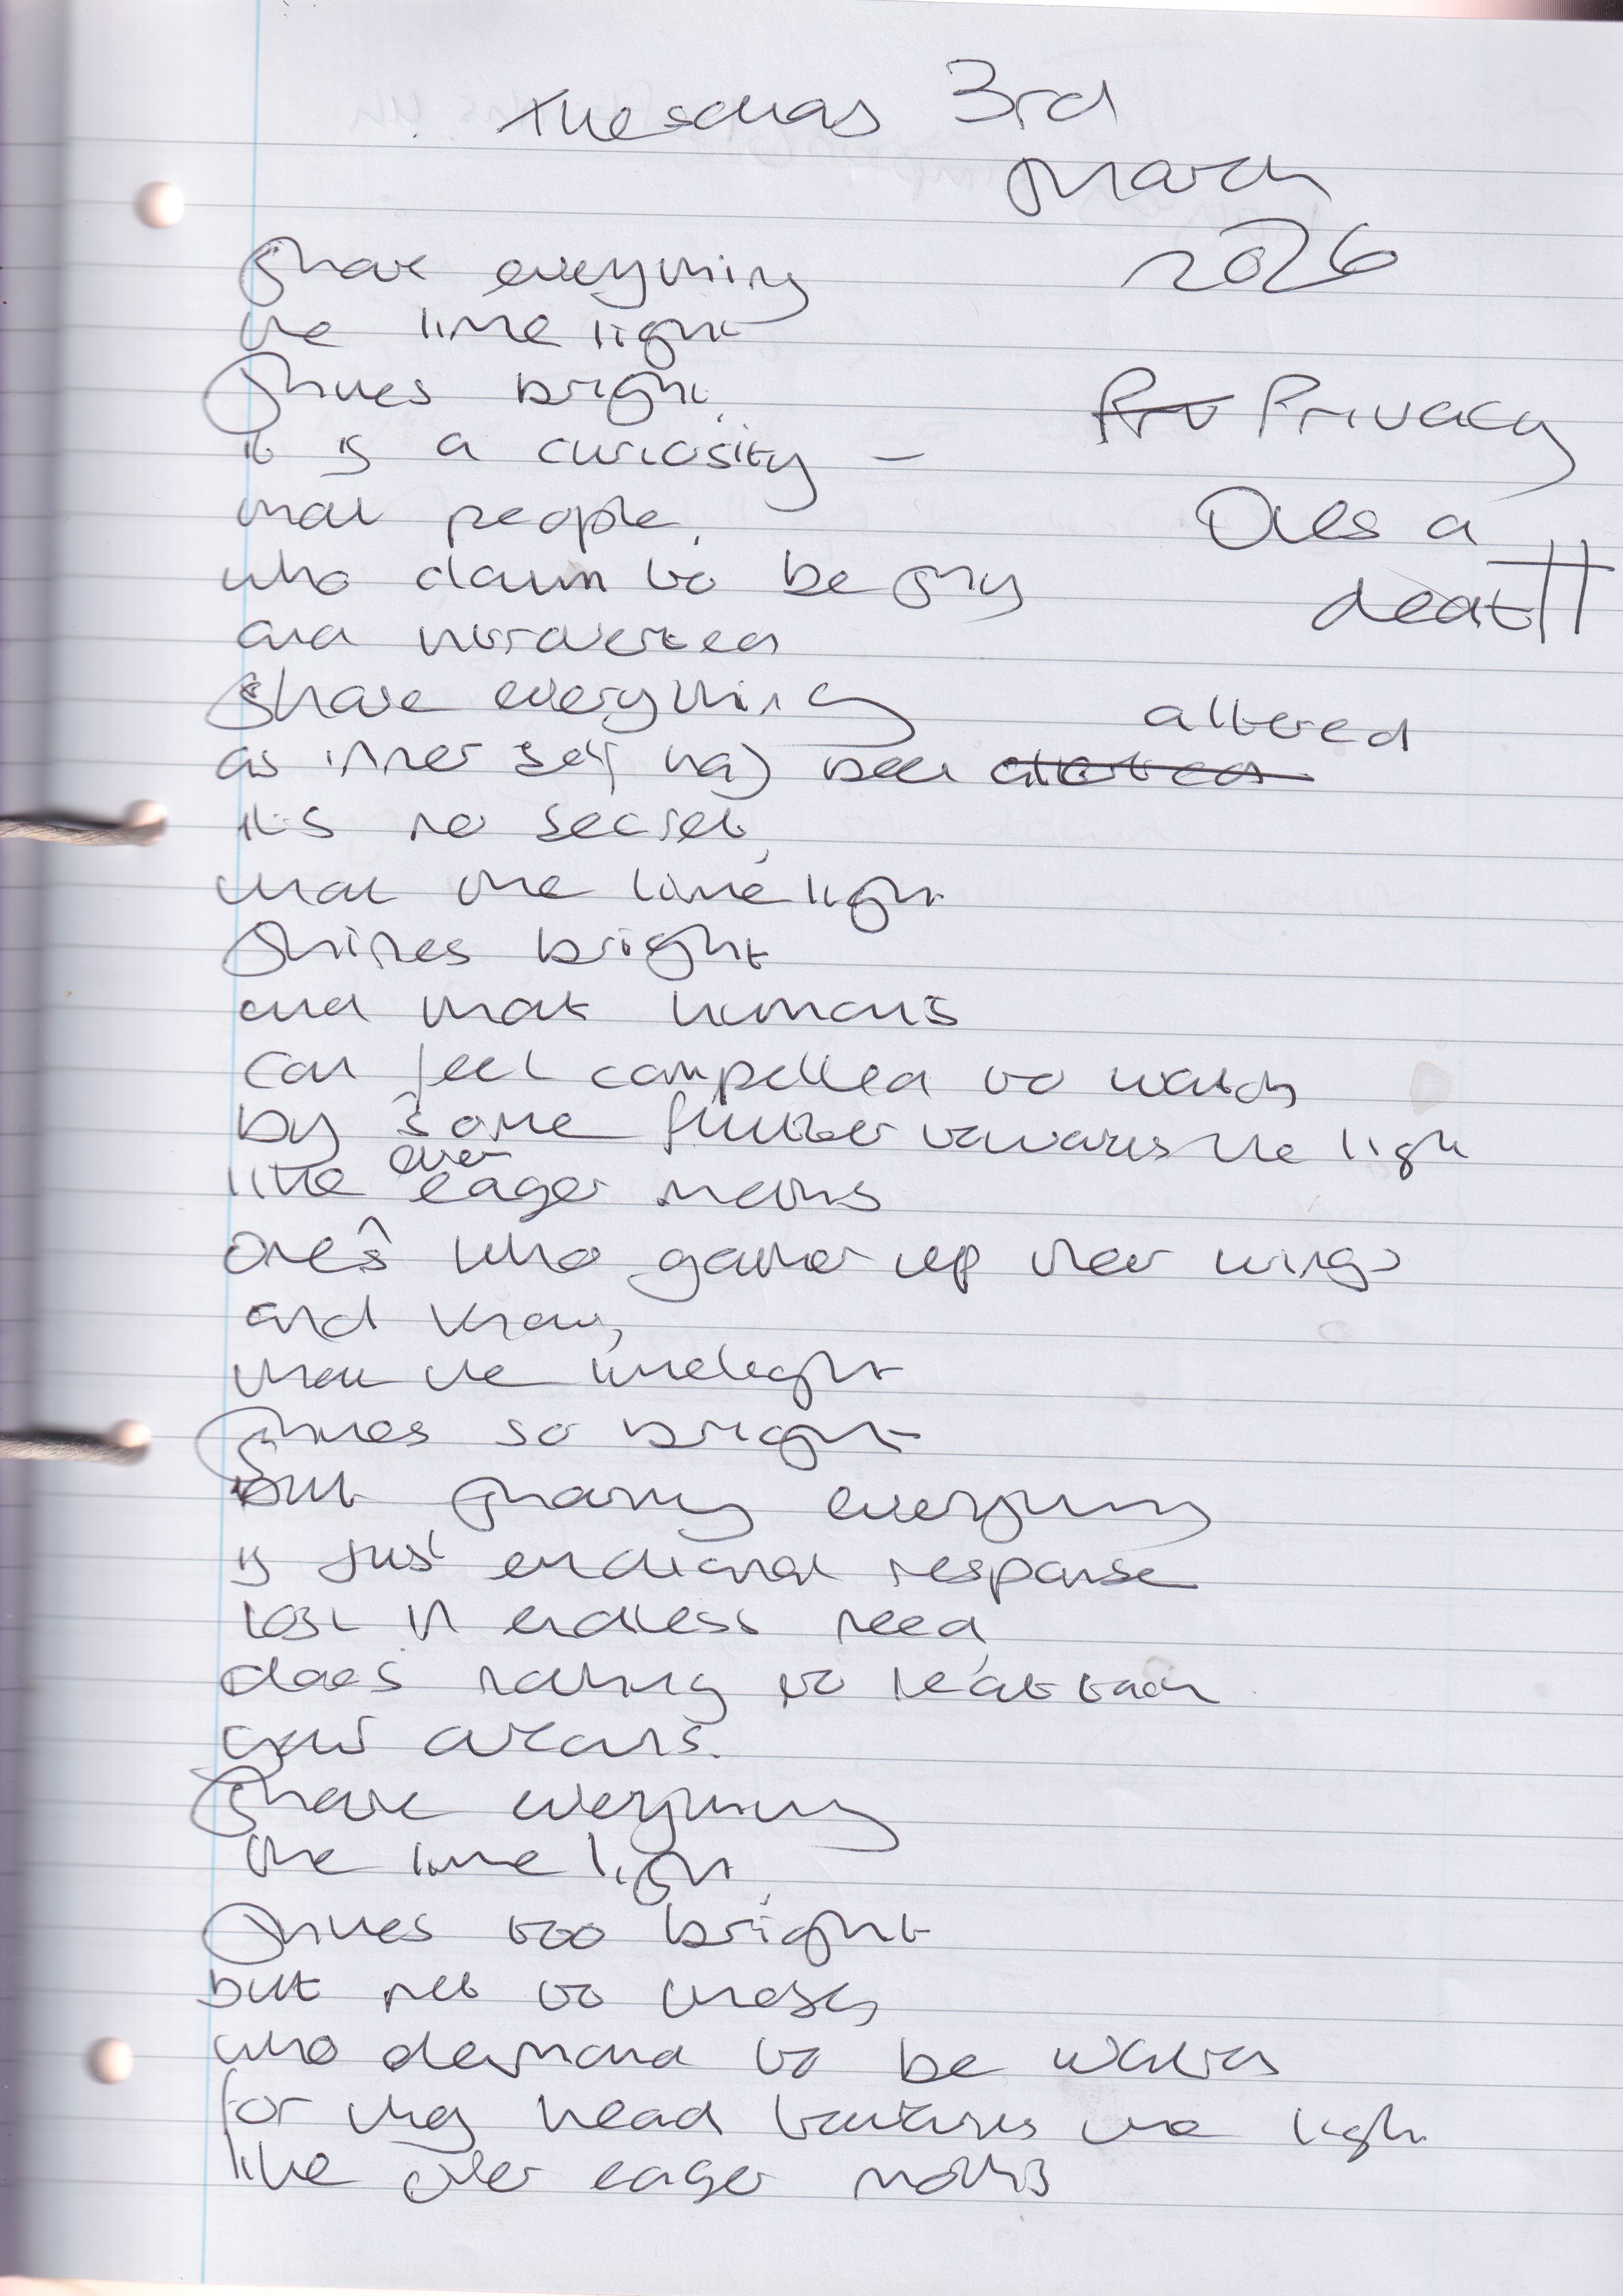 Tuesday 3rd
March
2026
Privacy
Dies a
death
Share everything
the lime light
Shines bright,
it is a curiosity –
that people,
who claim to be shy
and introverted
Share everything
as inner self has been altered
its no secret,
that the lime light
Shines bright
and that humans
can feel compelled to watch
by some flutter towards the light
like over eager moths
ones who gather up their wings
and know,
that the limelight
Shines so bright
but sharing everything
is just response
lost in endless need,
does nothing to
your
Share everything
the lime light,
Shines too bright
but not to those,
who demand to be
for they head towards the light
like over eager moths